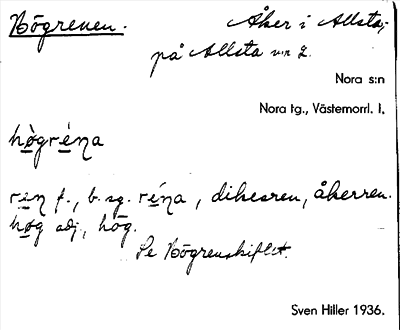 Högrenen.
Åker i Allsta,
på Allsta nr 2.
Nora s:n
Nora tg., Västernorrl. l.
hògréna
ren f., b. sg. réna, dikesren, åkerren.
høg adj., hög.
Se Högrenskiftet.
Sven Hiller 1936.